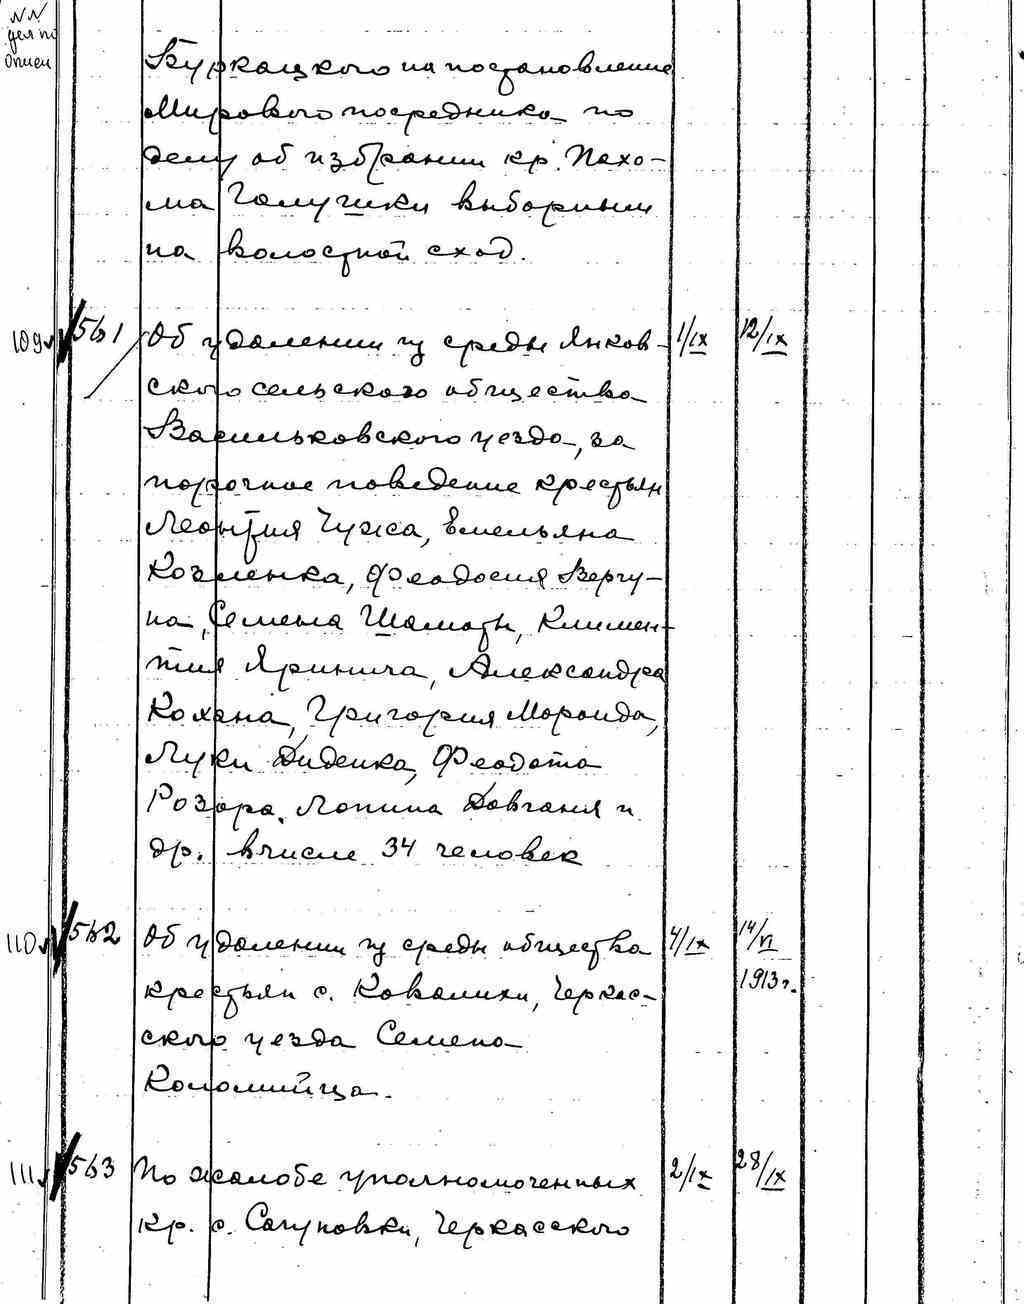 NN
дел по
описи
Буркацкого на постановление
Мирового посредника по
делу об избрании кр. Пахо-
ма Галушки выборным
на волостной сход.
109 561 Об удалении из среды Янков- 1/IX 12/IX
ского сельского общества
Васильковского уезда, за
порочное поведение крестьян
Леонтия Чужса, Емельяна
Козленка, Феодосия Вергу-
на, Семена Шаматы, Климен-
тия Яринича, Александра
Кохана, Григория Мороида,
Луки Диденка, Феодота
Розора, Лонина Довганя и
др. в числе 34 человек
110 562 Об удалении из среды общества 4/IX 14/VI
крестьян с. Ковалихи, Черкас- 1913 г.
ского уезда Семена
Коломийца.
111 563 По жалобе уполномоченных 2/IX 28/IX
кр. с. Сагуновки, Черкасского